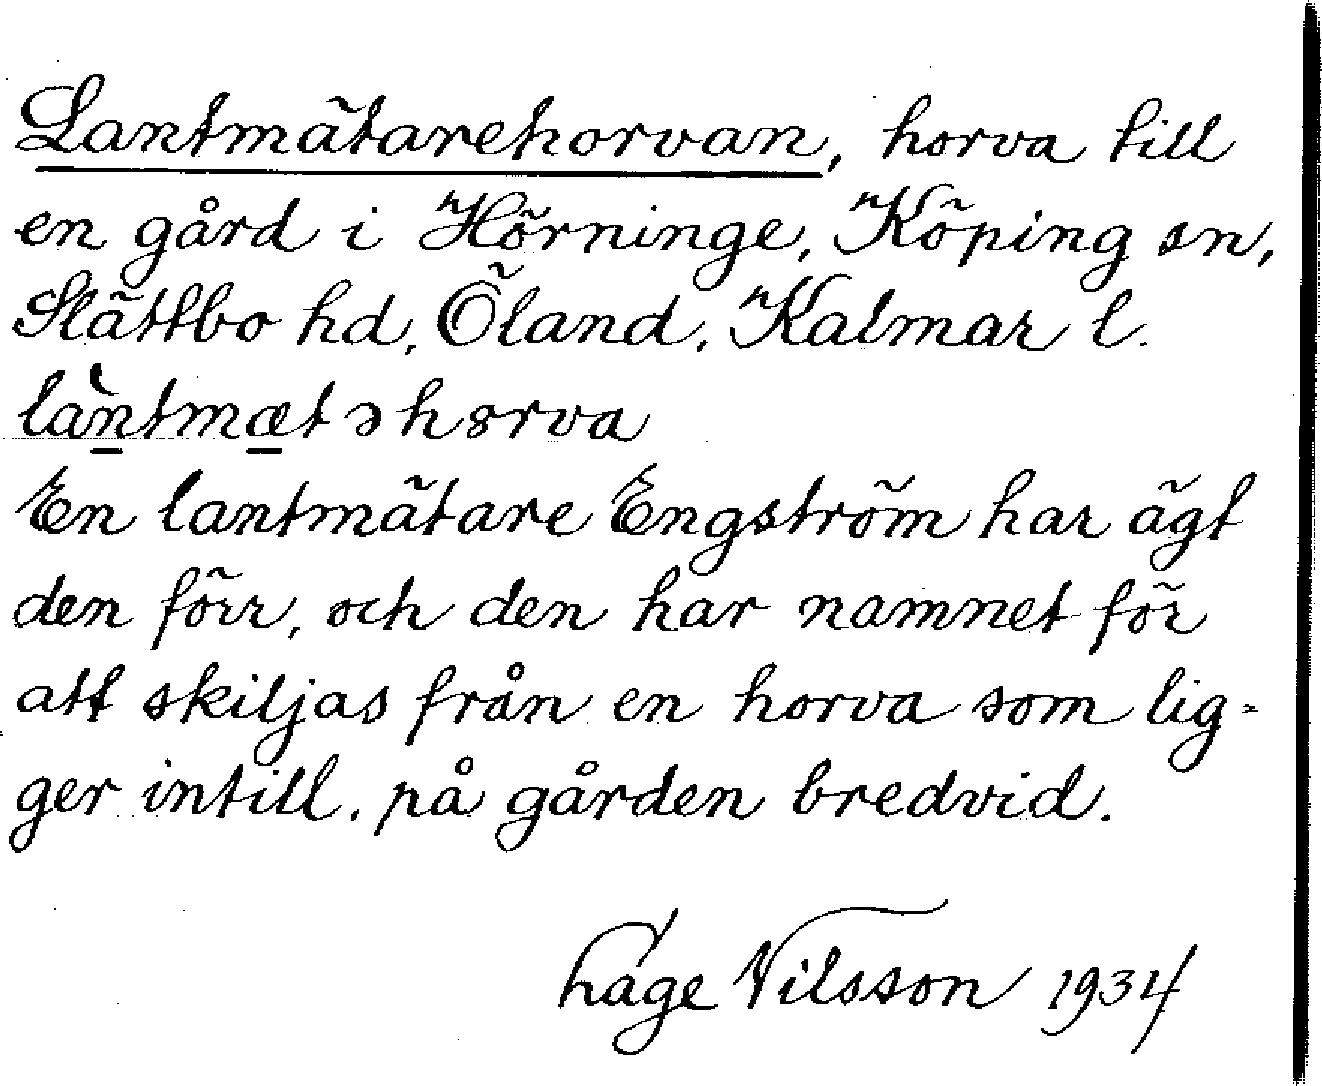 Lantmätarehorvan, horva till
en gård i Hörninge, Köping sn,
Slättbo hd, Öland, Kalmar l.
làntmætəhɞrva
En lantmätare Engström har ägt
den förr, och den har namnet för
att skiljas från en horva som lig-
ger intill, på gården bredvid.
Nilsson 1934